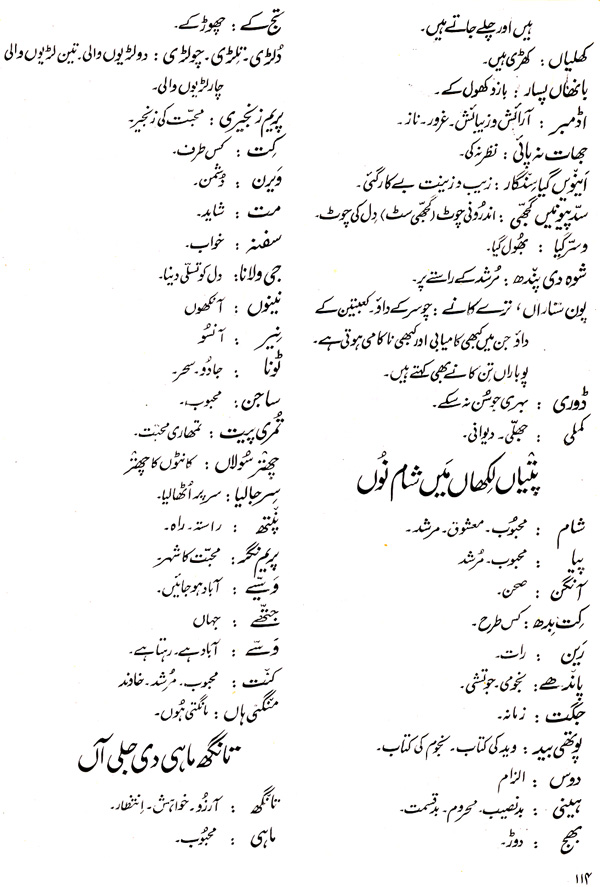 ہیں اور چلے جاتے ہیں۔
کھلیاں : کھڑی ہیں۔
بانھاں پسار : بازو کھول کے۔
اڈمبر : آرائش و زیبائش۔ غرور۔ ناز۔
جھات نہ پائی : نظر نہ کی۔
اینویں گیا سِنگار : زیب و زینت بے کار گئی۔
سدّ پیونیں گجھی : اندرونی چوٹ (گجھی سٹ) دِل کی چوٹ۔
وسر گیا : بھُول گیا۔
شوہ دی پندھ : مُرشد کے راستے پر۔
پون ستاراں، ترے کانے : چوسر کے داؤ۔ کعبتین کے
داؤ جن میں کبھی کامیابی اور کبھی ناکامی ہوتی ہے۔
پو باراں تِن کانے بھی کہتے ہیں۔
ڈوری : بہری جو سُن نہ سکے۔
کملی : جھلّی۔ دیوانی۔
پتیاں لِکھاں مَیں شام نُوں
شام : محبُوب۔ معشوق۔ مرشد۔
پیا : محبوب۔ مُرشد
آنگن : صحن۔
کِت بِدھ : کس طرح۔
رَین : رات۔
پانڈھے : نجومی۔ جوتشی۔
جگت : زمانہ۔
پوتھی بید : وید کی کتاب۔ نجوم کی کتاب۔
دوس : الزام
ہینی : بدنصیب۔ محروم۔ بدقسمت۔
بھج : دوڑ۔
تج کے : چھوڑ کے۔
دُلڑی۔ تِلڑی۔ چولڑی : دو لڑیوں والی۔ تین لڑیوں والی
چار لڑیوں والی۔
پریم زنجیری : محبّت کی زنجیر۔
کِت : کس طرف۔
وَیرن : دُشمن۔
مت : شاید۔
سفنہ : خواب۔
جی ولانا : دل کو تسلّی دینا۔
نینوں : آنکھوں
نِیر : آنسُو
ٹونا : جادُو۔ سحر۔
ساجن : محبوب۔
تُمری پریت : تمھاری محبّت۔
چھتر سُولاں : کانٹوں کا چھتر
سِر جالیا : سر پر اُٹھا لیا۔
پنتھ : راستہ۔ راہ۔
پریم نگر : محبّت کا شہر۔
وسیّے : آباد ہو جائیں۔
جتھے : جہاں
وَسے : آباد ہے۔ رہتا ہے۔
کنت : محبوب۔ مُرشد۔ خاوند
منگنی ہاں : مانگتی ہُوں۔
تانگھ ماہی دی جلی آں
تانگھ : آرزُو۔ خواہش۔ اِنتظار۔
ماہی : محبُوب۔
۱۱۴